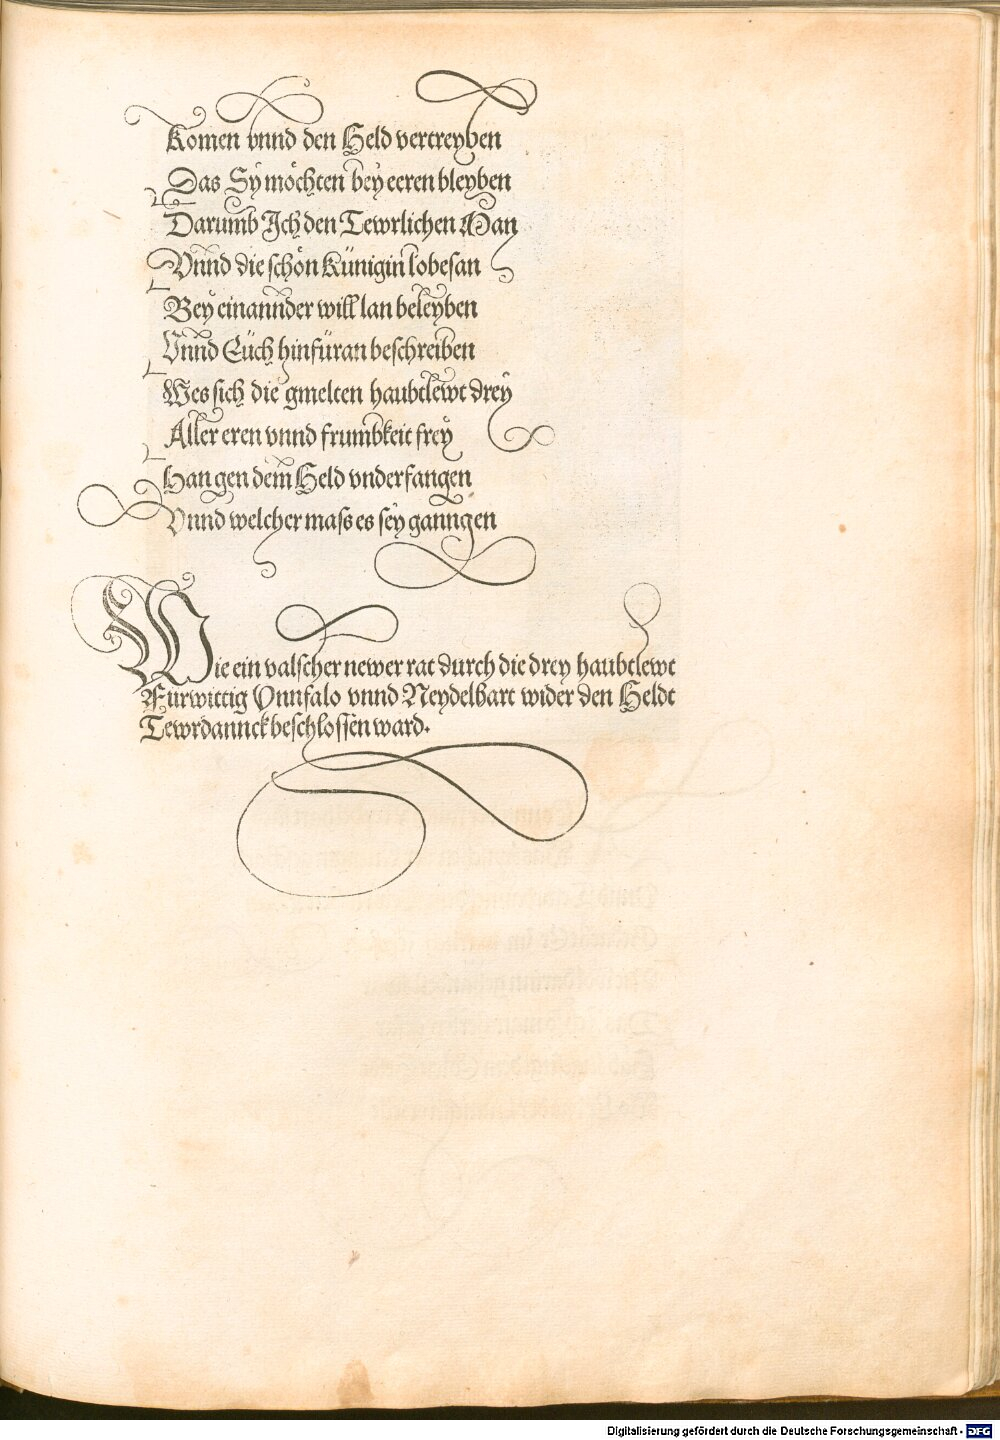 Komen vnnd den Held vertreyben
Das Sÿ möchten beÿ eeren bleyben
Darumb Ich den Tewrlichen Man
Vnnd die schön Künigin lobesan
Beÿ einannder will lan beleyben
Vnnd Eüch hinfüran beschreiben
Wes sich die gmelten haubtlewt dreÿ
Aller eren vnnd frumbkeit freÿ
Han gen dem Held vnderfangen
Vnnd welcher mass es seÿ ganngen
Wie ein valscher newer rat durch die drey haubtlewt
Fürwittig Vnnfalo vnnd Neydelhart wider den Heldt
Tewrdannck beschlossen ward.
Digitalisierung gefördert durch die Deutsche Forschungsgemeinschaft - DFG